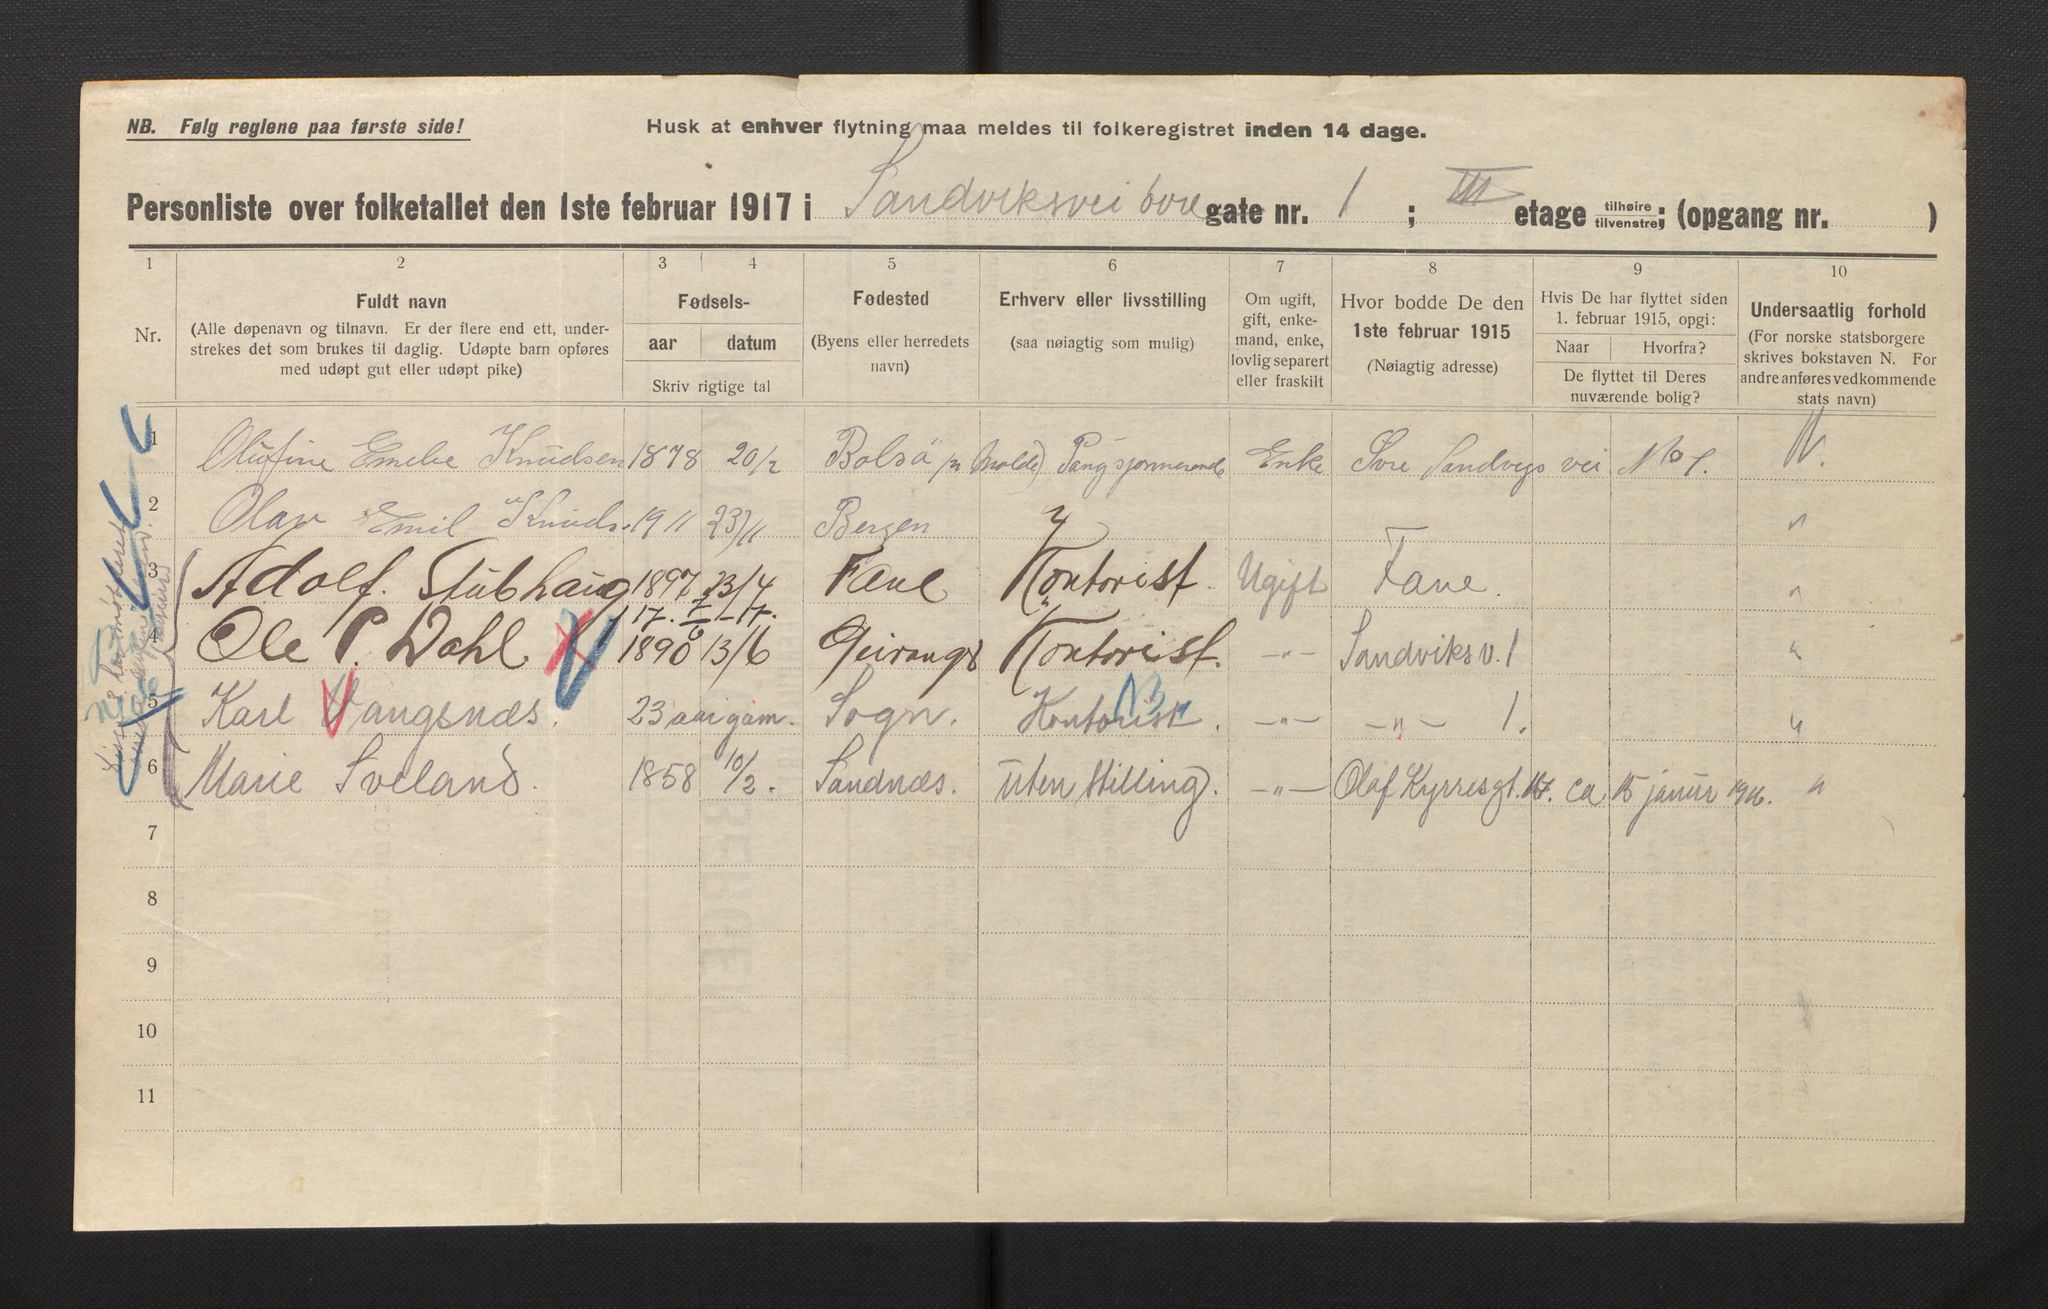 NB. Følg reglene paa første side!
Husk at enhver flytning maa meldes til folkeregistret inden 14 dage.
Personliste over folketallet den 1ste februar 1917 i Sandviksvei øvre gate nr. 1 ; III etage tilhøire tilvenstre; (opgang nr. )
1 2 3 4 5 6 7 8 9 10
Nr.
Fuldt navn
(Alle døpenavn og tilnavn. Er der flere end ett, under-
strekes det som brukes til daglig. Udøpte barn opføres
med udøpt gut eller udøpt pike)
Fødsels-
aar datum
Skriv rigtige tal
Fødested
(Byens eller herredets
navn)
Erhverv eller livsstilling
(saa nøiagtig som mulig)
Om ugift,
gift, enke-
mand, enke,
lovlig separert
eller fraskilt
Hvor bodde De den
1ste februar 1915
(Nøiagtig adresse)
Hvis De har flyttet siden
1. februar 1915, opgi:
Naar Hvorfra?
De flyttet til Deres
nuværende bolig?
Undersaatlig forhold
(For norske statsborgere
skrives bokstaven N. For
andre anføres vedkommende
stats navn)
1 Olufine Emelie Knudsen 1878 20/2 Bolsö pr Molde) Pangsjonnerende Enke Svre Sandvigs vei No 1. N.
2 Olav Emil Knuds. 1911 23/11 Bergen "
3 Adolf. Stubhaug 1897 23/4 Fane Kontorist. Ugift Fane. "
17. 7 - 17.
4 Ole P. Dahl 1890 13/6 Geiranger Kontorist. -"- Sandviks v. 1 "
5 Karl Vangsnæs. 23 aar gam. Sogn. Kontorist. -"- -"- 1. "
6 Marie Sveland. 1858 10/2. Sandnæs. Uten stilling. -"- Olaf Kyrresgt. 17. ca 15 januar 1916. "
7
8
9
10
11